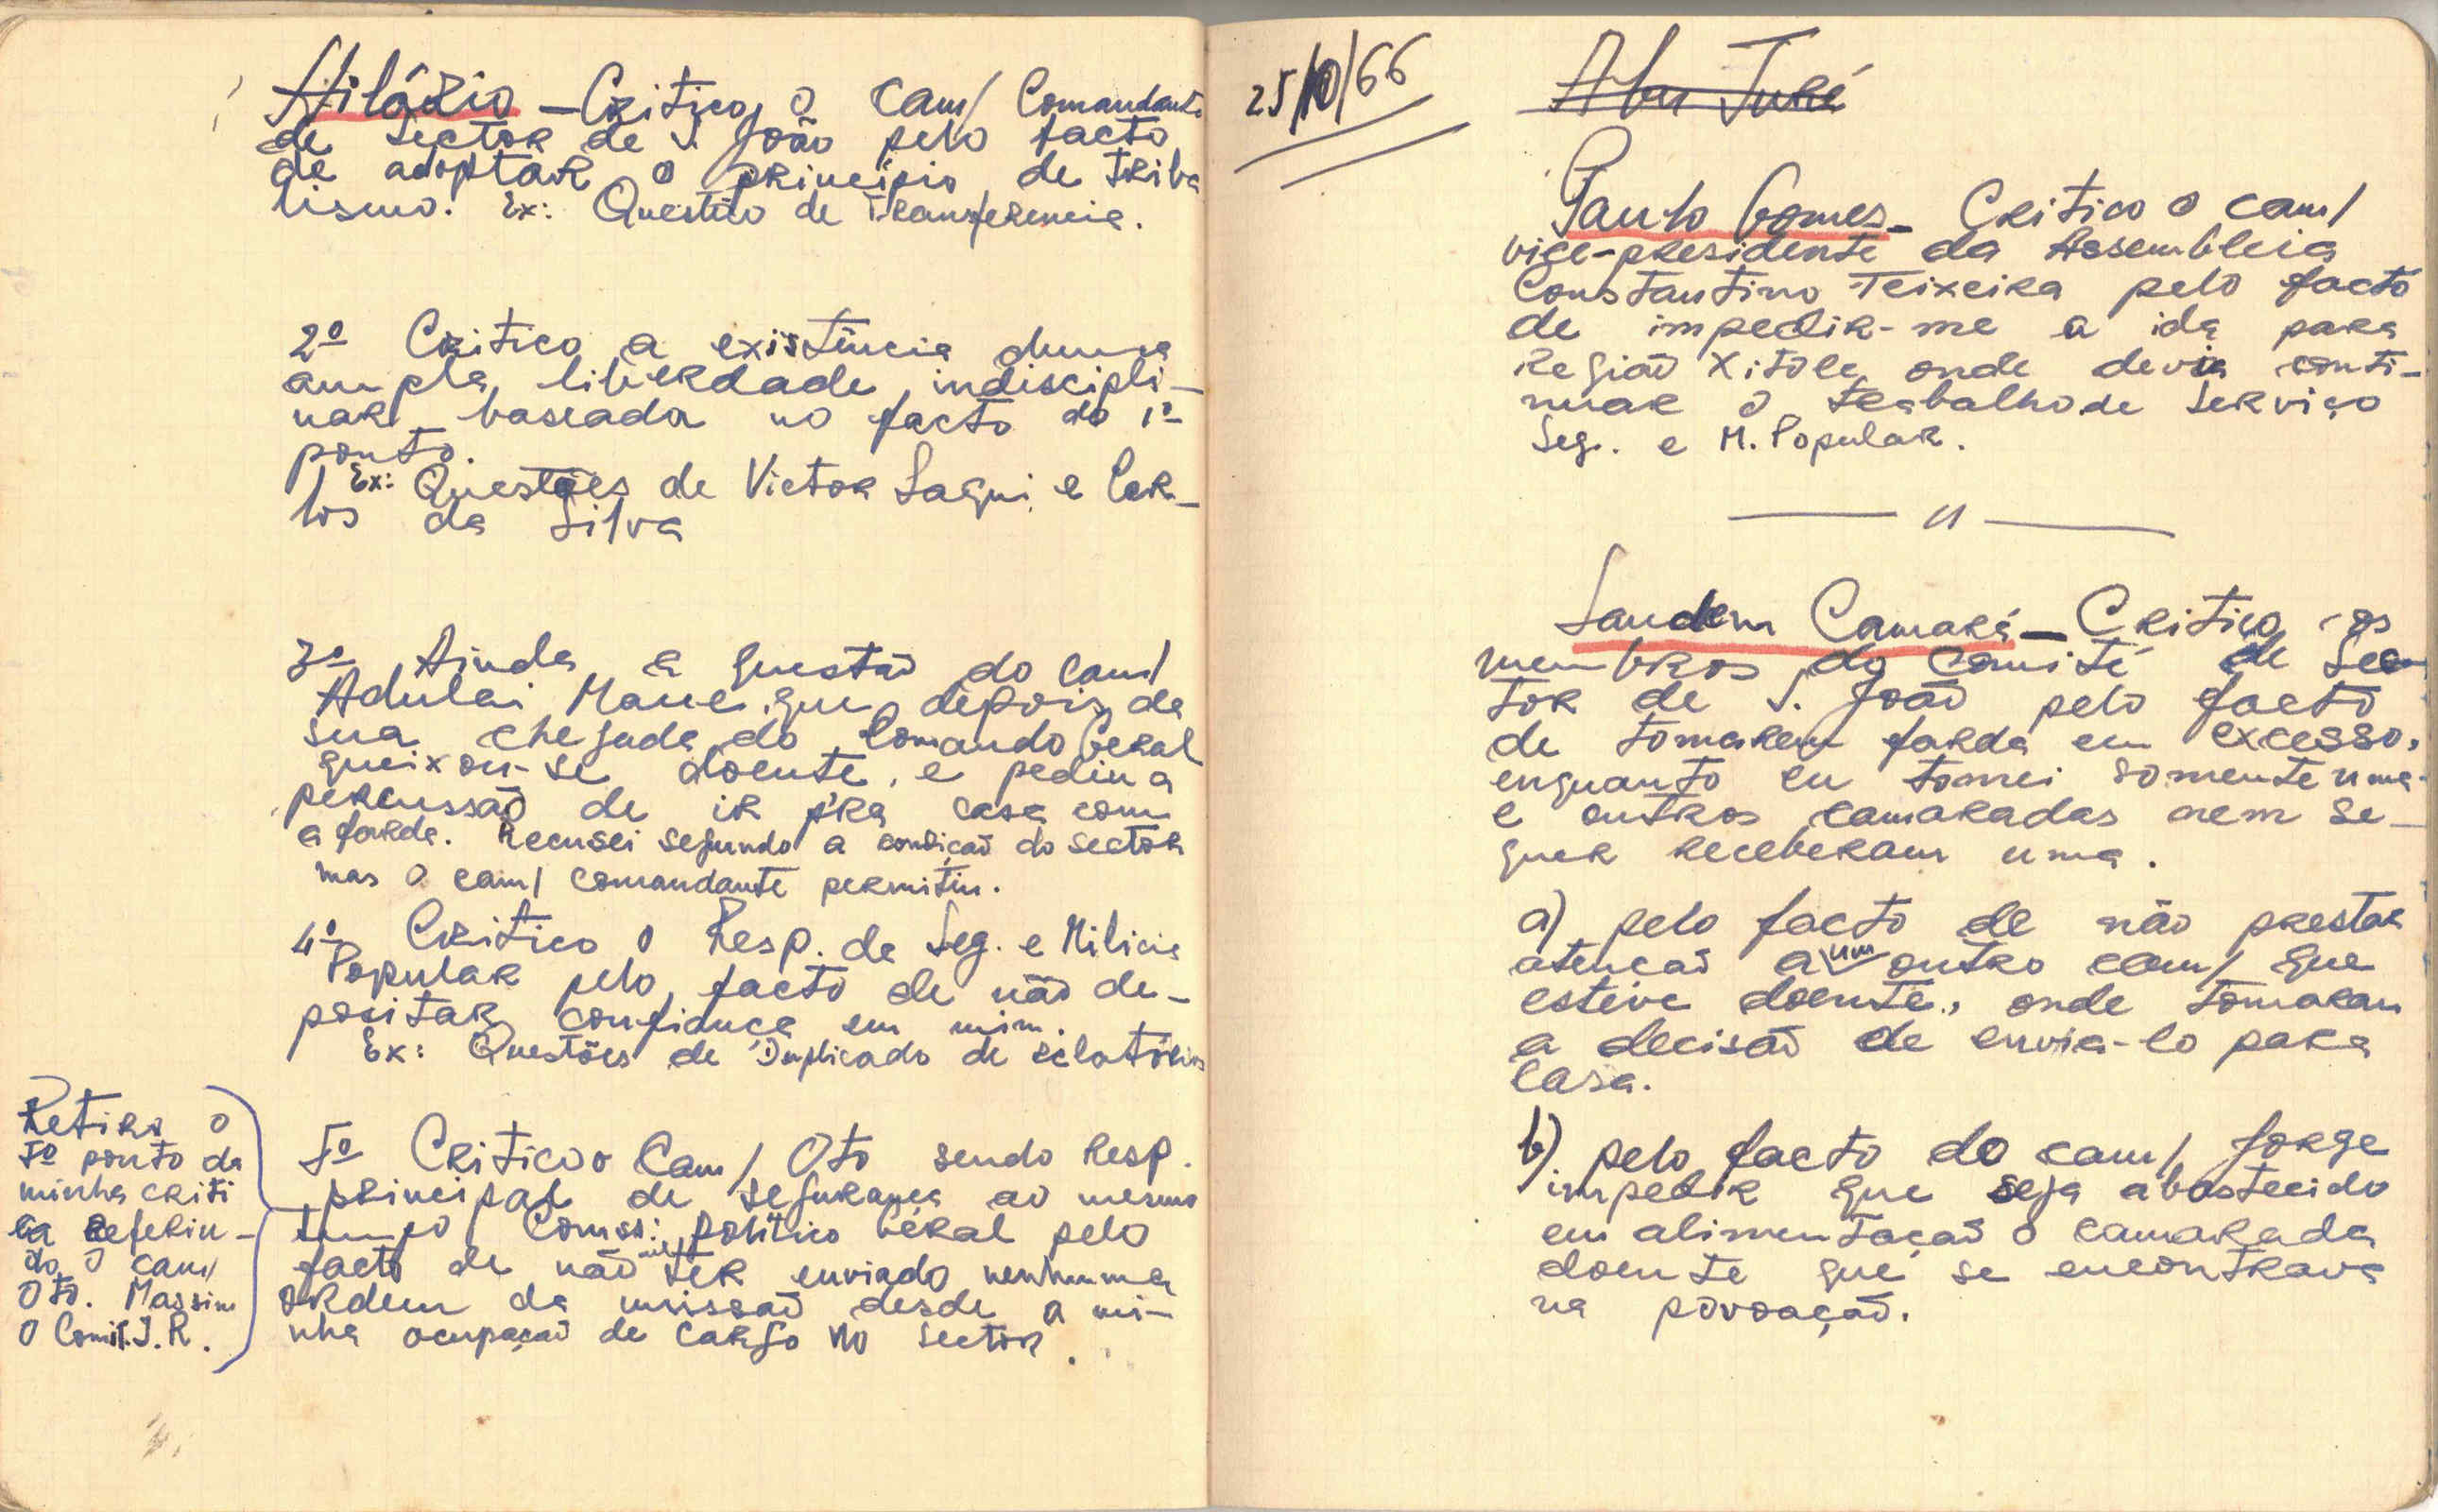 Hilário – Critico, o cam/ Comandante
de Sector de S. João pelo facto
de adoptar o principio de triba
lismo. Ex: Questão de Transferencia.
2º Critico a existência duma
ampla liberdade, indiscipli-
nar baseada no facto do 1º
ponto.
Ex: Questões de Victor Sagui e Car-
los da Silva
3º Ainda a questão do cam/
Adulai Mane que depois da
sua chegada do Comando Geral
queixou-se doente, e pediu a
percussão de ir p'ra casa com
a farda. Recusei segundo a condição do sector
mas o cam/ comandante permitiu.
4º Critico o Resp. de Seg. e Milicia
Popular pelo facto de não de-
positar confiança em mim.
Ex: Questões de Duplicado de relatórios
5º Critico o Cam/ Oto sendo Resp.
principal de segurança ao mesmo
tempo Comss: político Geral pelo
facto de não me ter enviado nenhuma
ordem da missão desde a mi-
nha ocupação de cargo no sector.
Retiro o
5º ponto da
minha criti
ca referin-
do o cam/
Oto. Massim
o Comit. I. R.
25/10/66
Abu Turé
Paulo Gomes – Critico o cam/
vice-presidente da Assembleia
Constantino Teixeira pelo facto
de impedir-me a ida para
Região Xitole, onde devia conti-
nuar o trabalho de Serviço
Seg. e M. Popular.
— " —
Sandem Camará – Critico os
membros do comité de Sec
tor de S. João pelo facto
de tomarem farda em excesso,
enquanto eu tomei somente uma
e outros camaradas nem se-
quer receberam uma.
a) pelo facto de não prestar
atenção a um outro cam/ que
esteve doente, onde tomaram
a decisão de envia-lo para
casa.
b) pelo facto do cam/ Jorge
impedir que seja abastecido
em alimentação o camarada
doente que se encontrava
na povoação.